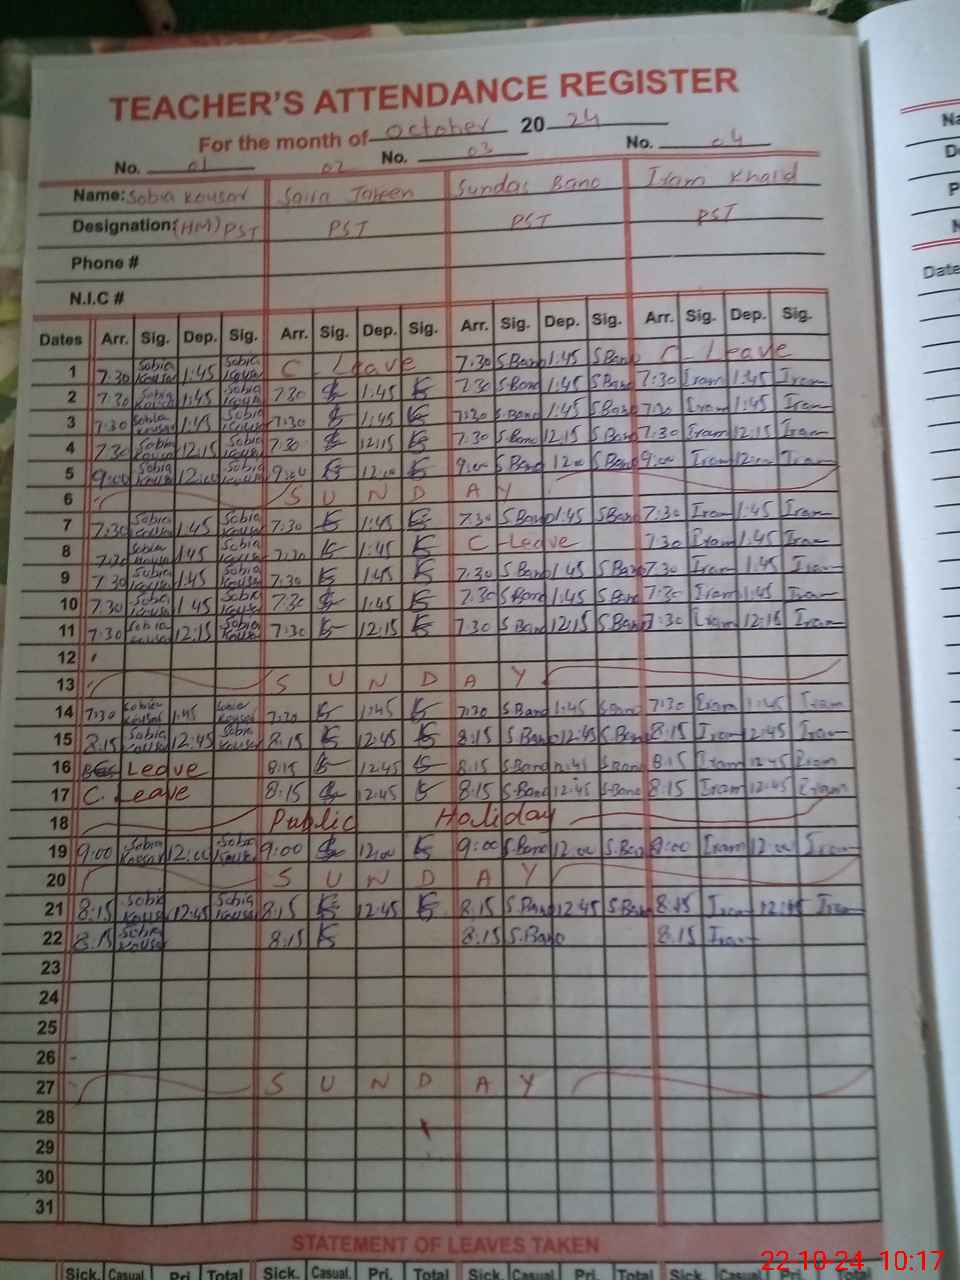 TEACHER'S ATTENDANCE REGISTER
For the month of October 2024
No. 01 02 No. 03 No. 04
Name: Sobia Kousar Saira Sundas Bano Iram Khalid
Designation: (HM) PST PST PST PST
Phone #
N.I.C #
Dates Arr. Sig. Dep. Sig. Arr. Sig. Dep. Sig. Arr. Sig. Dep. Sig. Arr. Sig. Dep. Sig.
1 7:30 Sobia Kousar 1:45 Sobia Kousar C-Leave 7:30 S.Bano 1:45 S.Bano C-Leave
2 7:30 Sobia Kousar 1:45 Sobia Kousar 7:30 1:45 7:30 S.Bano 1:45 S.Bano 7:30 Iram 1:45 Iram
3 7:30 Sobia Kousar 1:45 Sobia Kousar 7:30 1:45 7:30 S.Bano 1:45 S.Bano 7:30 Iram 1:45 Iram
4 7:30 Sobia Kousar 12:15 Sobia Kousar 7:30 12:15 7:30 S.Bano 12:15 S.Bano 7:30 Iram 12:15 Iram
5 9:00 Sobia Kousar 12:00 Sobia Kousar 9:00 12:00 9:00 S.Bano 12:00 S.Bano 9:00 Iram 12:00 Iram
6 SUNDAY
7 7:30 Sobia Kousar 1:45 Sobia Kousar 7:30 1:45 7:30 S.Bano 1:45 S.Bano 7:30 Iram 1:45 Iram
8 7:30 Sobia Kousar 1:45 Sobia Kousar 7:30 1:45 C-Leave 7:30 Iram 1:45 Iram
9 7:30 Sobia Kousar 1:45 Sobia Kousar 7:30 1:45 7:30 S.Bano 1:45 S.Bano 7:30 Iram 1:45 Iram
10 7:30 Sobia Kousar 1:45 Sobia Kousar 7:30 1:45 7:30 S.Bano 1:45 S.Bano 7:30 Iram 1:45 Iram
11 7:30 Sobia Kousar 12:15 Sobia Kousar 7:30 12:15 7:30 S.Bano 12:15 S.Bano 7:30 Iram 12:15 Iram
12
13 SUNDAY
14 7:30 Sobia Kousar 1:45 Sobia Kousar 7:30 1:45 7:30 S.Bano 1:45 S.Bano 7:30 Iram 1:45 Iram
15 8:15 Sobia Kousar 12:45 Sobia Kousar 8:15 12:45 8:15 S.Bano 12:45 S.Bano 8:15 Iram 12:45 Iram
16 Leave 8:15 12:45 8:15 S.Bano S.Bano 8:15 Iram 12:45 Iram
17 C. Leave 8:15 12:45 8:15 S.Bano 12:45 S.Bano 8:15 Iram 12:45 Iram
18 Public Holiday
19 9:00 Sobia Kousar 12:00 Sobia Kousar 9:00 12:00 9:00 S.Bano 12:00 S.Bano 9:00 Iram 12:00 Iram
20 SUNDAY
21 8:15 Sobia Kousar 12:45 Sobia Kousar 8:15 12:45 8:15 S.Bano 12:45 S.Bano 8:15 Iram 12:45 Iram
22 8:15 Sobia Kousar 8:15 8:15 S.Bano 8:15 Iram
23
24
25
26
27 SUNDAY
28
29
30
31
STATEMENT OF LEAVES TAKEN
Sick. Casual. Pri. Total Sick. Casual. Pri. Total Sick. Casual. Pri. Total Sick. Casual
22-10-24 10:17
Date